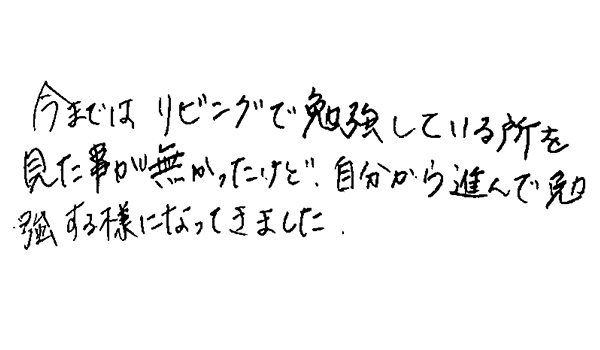 今まではリビングで勉強している所を
見た事が無かったけど、自分から進んで勉
強する様になってきました.